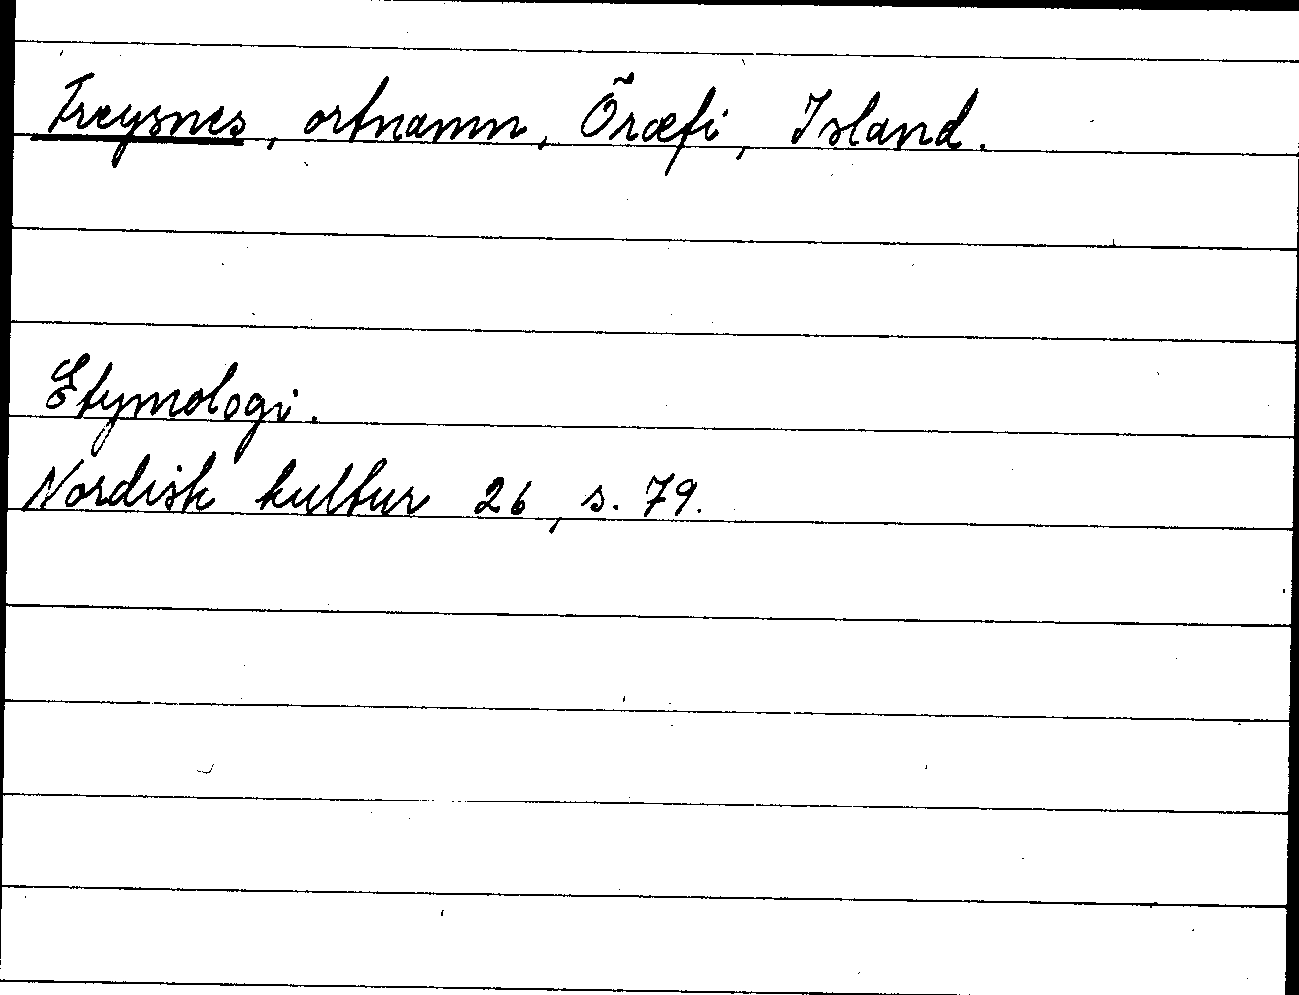 Freysnes, ortnamn, Öræfi, Island.
Etymologi.
Nordisk kultur 26, s. 79.